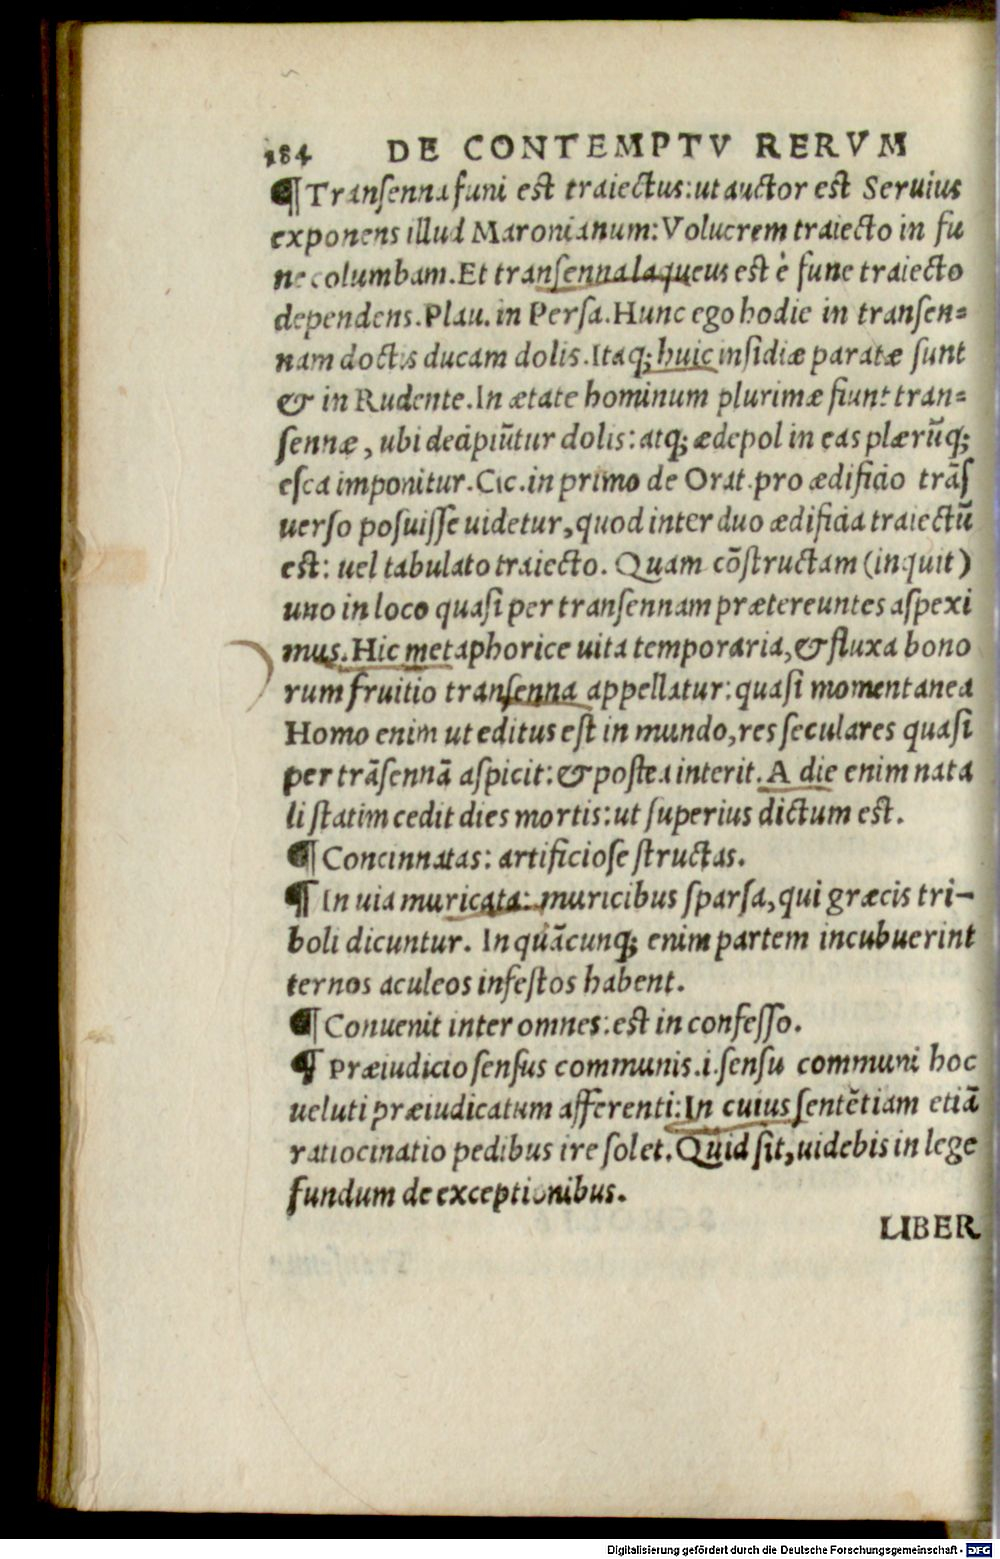 184 DE CONTEMPTV RERVM
¶ Transenna funi est traiectus: ut auctor est Seruius
exponens illud Maronianum: Volucrem traiecto in fu
ne columbam. Et transenna laqueus est è fune traiecto
dependens. Plau. in Persa. Hunc ego hodie in transen=
nam doctis ducam dolis. Itaq; huic insidiæ paratæ sunt
& in Rudente. In ætate hominum plurimæ fiunt tran=
sennæ, ubi decipiũtur dolis: atq; ædepol in eas plærũq;
esca imponitur. Cic. in primo de Orat. pro ædificio trãs
uerso posuisse uidetur, quod inter duo ædificia traiectũ
est: uel tabulato traiecto. Quam cõstructam (inquit)
uno in loco quasi per transennam prætereuntes aspexi
mus. Hic metaphorice uita temporaria, & fluxa bono
rum fruitio transenna appellatur: quasi momentanea
Homo enim ut editus est in mundo, res seculares quasi
per trãsennã aspicit: & postea interit. A die enim nata
li statim cedit dies mortis: ut superius dictum est.
¶ Concinnatas: artificiose structas.
¶ In uia muricata: muricibus sparsa, qui græcis tri-
boli dicuntur. In quãcunq; enim partem incubuerint
ternos aculeos infestos habent.
¶ Conuenit inter omnes: est in confesso.
¶ Præiudicio sensus communis. i. sensu communi hoc
ueluti præiudicatum afferenti: In cuius sentẽtiam etiã
ratiocinatio pedibus ire solet. Quid sit, uidebis in lege
fundum de exceptionibus.
LIBER
Digitalisierung gefördert durch die Deutsche Forschungsgemeinschaft - DFG